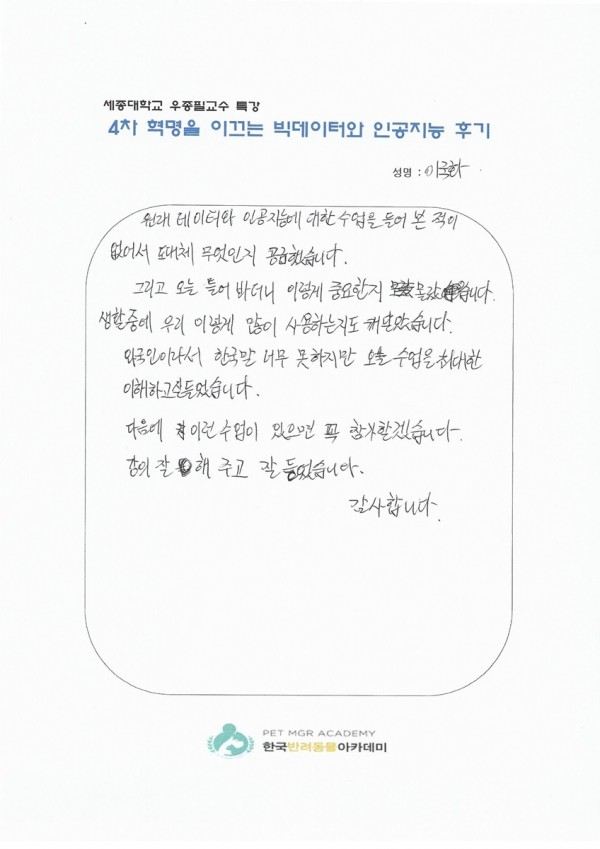 세종대학교 우종필교수 특강
4차 혁명을 이끄는 빅데이터와 인공지능 후기
성명 :
원래 데이터와 인공지능에 대한 수업을 들어 본 적이
없어서 도대체 무엇인지 공급했습니다.
그리고 오늘 들어 봐더니 이렇게 중요한지 몰랐습니다.
생활중에 우리 이렇게 많이 사용하는지도 깨달았습니다.
외국인이라서 한국말 너무 못하지만 오늘 수업을 최대한
이해하고 들었습니다.
다음에 이런 수업이 있으면 꼭 참가할겠습니다.
강의 잘 해 주고 잘 들었습니다.
감사합니다.
PET MGR ACADEMY
한국반려동물아카데미